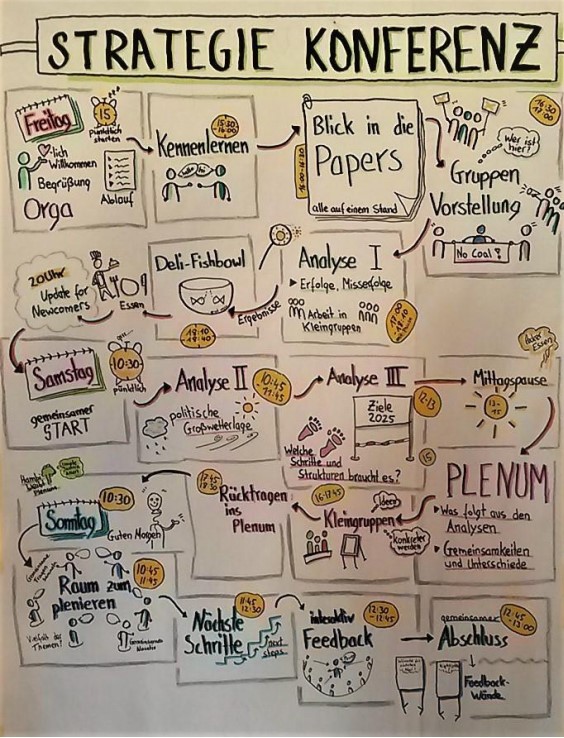 STRATEGIE KONFERENZ
Freitag
15
pünktlich
starten
-lich
Willkommen
Begrüßung
Orga
Ablauf
15:30
-16:00
Kennenlernen
Blick in die
Papers
alle auf einem Stand
16:30
-17:00
Wer ist
hier?
Gruppen
Vorstellung
No Coal!
Analyse I
Erfolge, Misserfolge
Arbeit in
Kleingruppen
17:00
-18:10
Ergebnisse
Deli-Fishbowl
18:10
-18:40
Essen
20 Uhr
Update for
Newcomers
Samstag
10:30
pünktlich
gemeinsamer
START
Analyse II
10:45
-11:45
politische
Großwetterlage
Analyse III
12-13
Ziele
2025
Welche
Schritte und
Strukturen braucht es?
Mittagspause
13-
15
15
PLENUM
Was folgt aus den
Analysen
Gemeinsamkeiten
und Unterschiede
16-17:45
Ideen
Kleingruppen
Konkreter
werden
Rücktragen
ins
Plenum
Sonntag
10:30
Guten Morgen
10:45
-11:45
Raum zum
plenieren
Vielfalt der
Themen?
11:45
-12:30
Nächste
Schritte
next
steps
interaktiv
Feedback
12:30
-12:45
gemeinsamer
Abschluss
12:45
-13:00
Feedback-
Wände